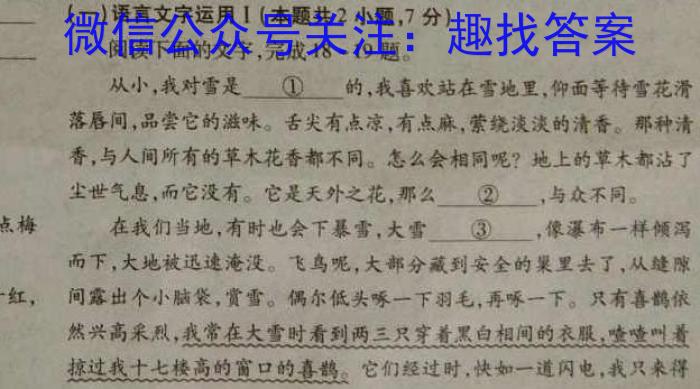 (一)语言文字运用Ⅰ(本题共2小题,7分)
微信公众号关注：趣找答案
阅读下面的文字,完成18~19题。
从小,我对雪是①的,我喜欢站在雪地里,仰面等待雪花滑
落唇间,品尝它的滋味。舌尖有点凉,有点麻,萦绕淡淡的清香。那种清
香,与人间所有的草木花香都不同。怎么会相同呢？地上的草木都沾了
尘世气息,而它没有。它是天外之花,那么②,与众不同。
点梅
在我们当地,有时也会下暴雪,大雪③,像瀑布一样倾泻
而下,大地被迅速淹没。飞鸟呢,大部分藏到安全的巢里去了,从缝隙
红,
间露出个小脑袋,赏雪。偶尔低头啄一下羽毛,再啄一下。只有喜鹊依
然兴高采烈,我常在大雪时看到两三只穿着黑白相间的衣服,喳喳叫着
掠过我十七楼高的窗口的喜鹊。它们经过时,快如一道闪电,我只来得